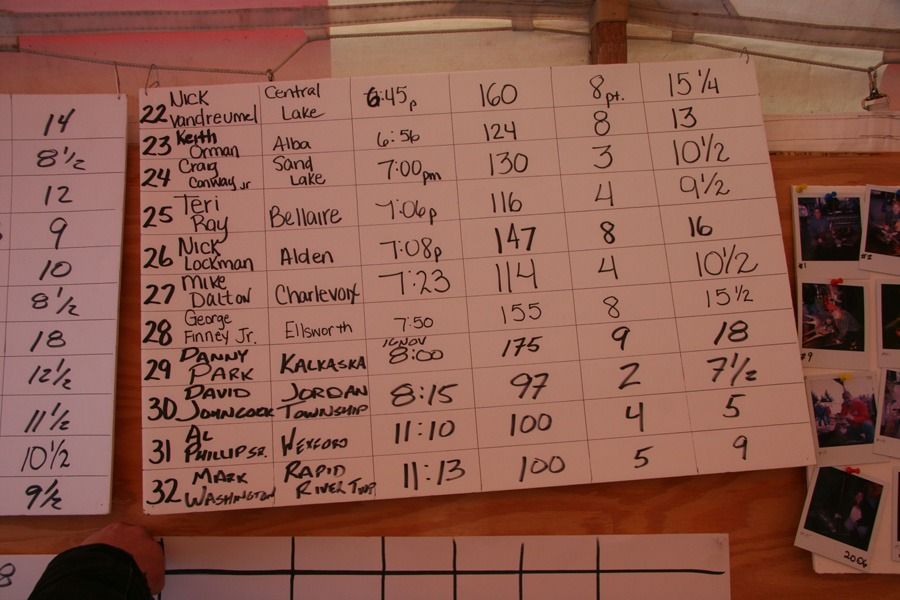 14
8½
12
9
10
8½
18
12½
11½
10½
9½
22 Nick Vandreumel Central Lake 6:45p 160 8pt. 15¼
23 Keith Orman Alba 6:56 124 8 13
24 Craig Conway Jr Sand Lake 7:00pm 130 3 10½
25 Teri Ray Bellaire 7:06p 116 4 9½
26 Nick Lockman Alden 7:08p 147 8 16
27 Mike Dalton Charlevoix 7:23 114 4 10½
28 George Finney Jr. Ellsworth 7:50 155 8 15½
29 DANNY PARK KALKASKA 16 NOV 8:00 175 9 18
30 DAVID JOHNCOCK JORDAN TOWNSHIP 8:15 97 2 7½
31 AL PHILLIP SR. WEXFORD 11:10 100 4 5
32 MARK WASHINGTON RAPID RIVER TWP 11:13 100 5 9
8
#1
#2
#9
2006